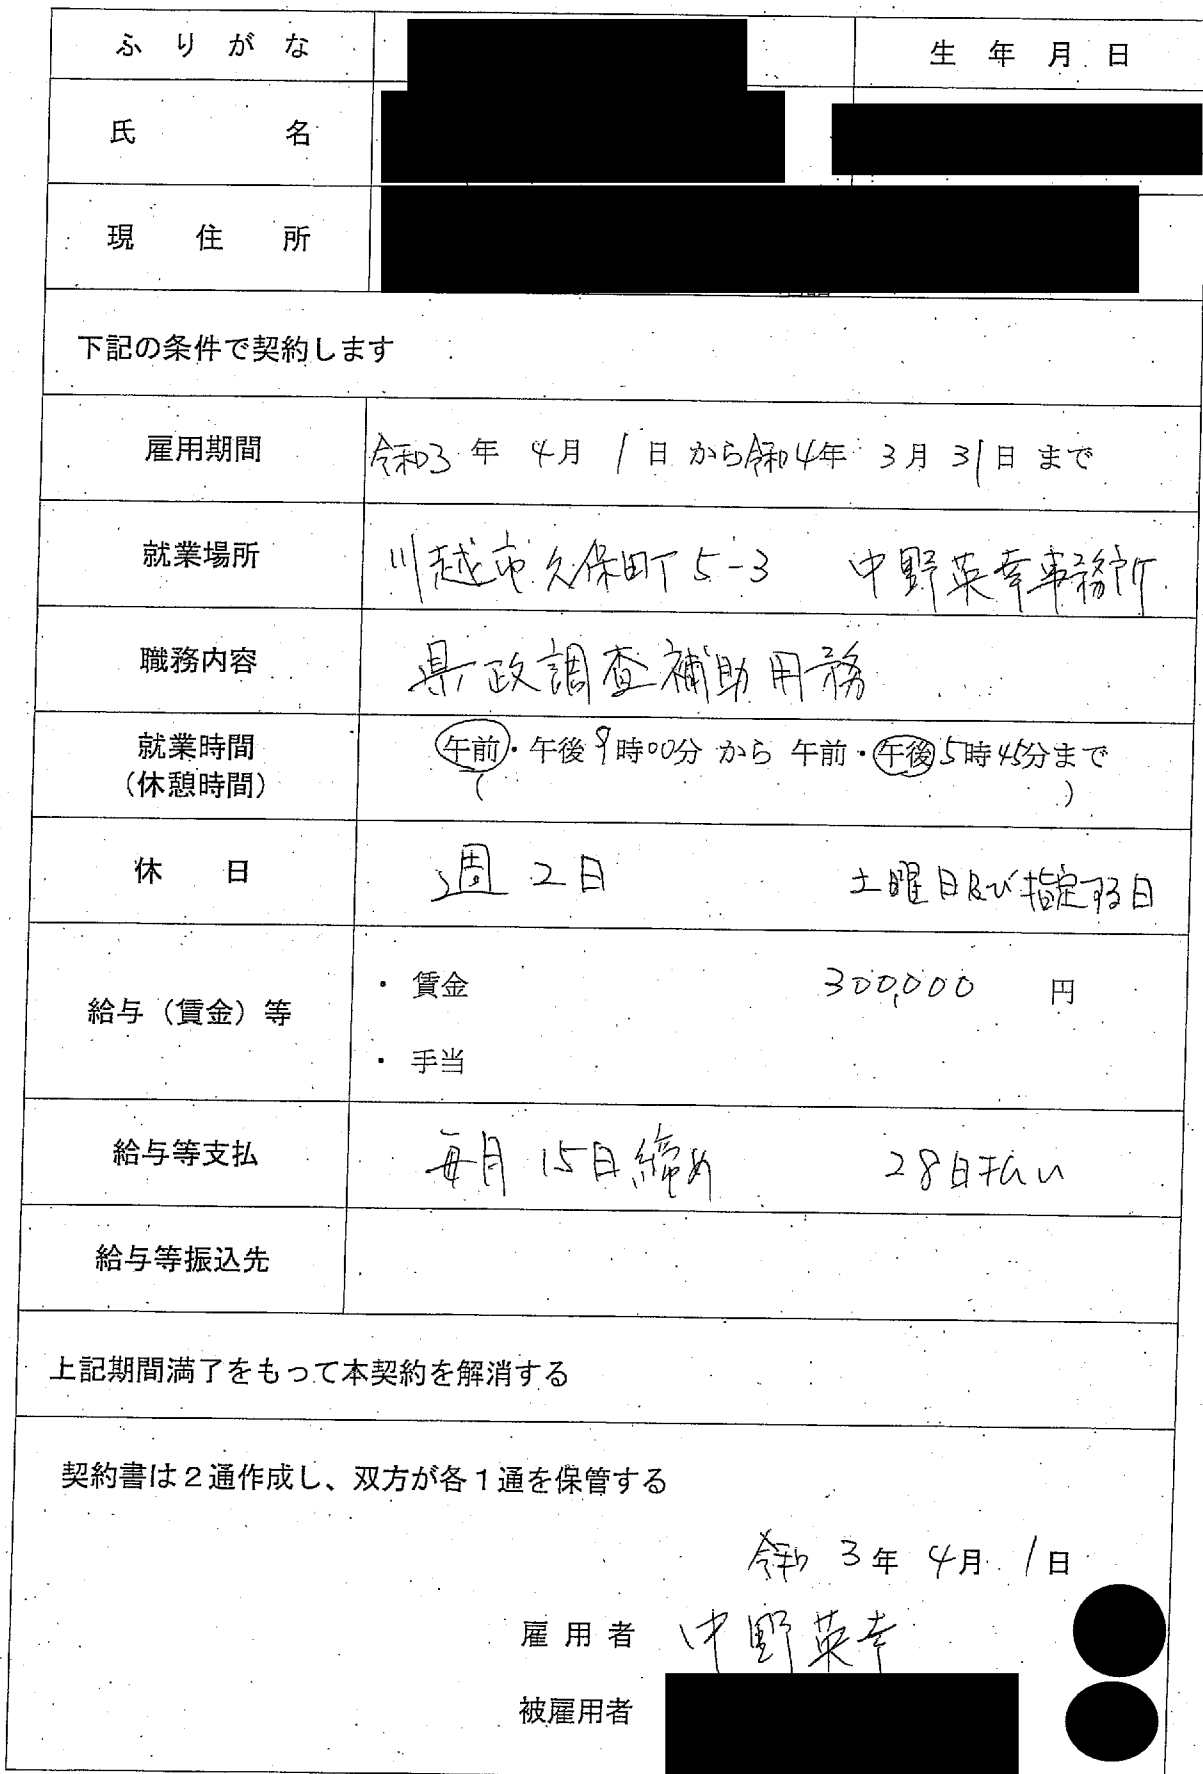 ふりがな
生年月日
氏名
現住所
下記の条件で契約します
雇用期間 令和3年 4月 1日 から令和4年 3月 31日 まで
就業場所 川越市久保町5-3 中野英幸事務所
職務内容 県政調査補助用務
就業時間 午前・午後9時00分 から 午前・午後5時45分まで
（休憩時間） ( )
休日 週2日 土曜日及び指定する日
給与（賃金）等
・賃金 300,000 円
・手当
給与等支払 毎月15日締め 28日払い
給与等振込先
上記期間満了をもって本契約を解消する
契約書は2通作成し、双方が各1通を保管する
令和 3年 4月 1日
雇用者 中野英幸
被雇用者